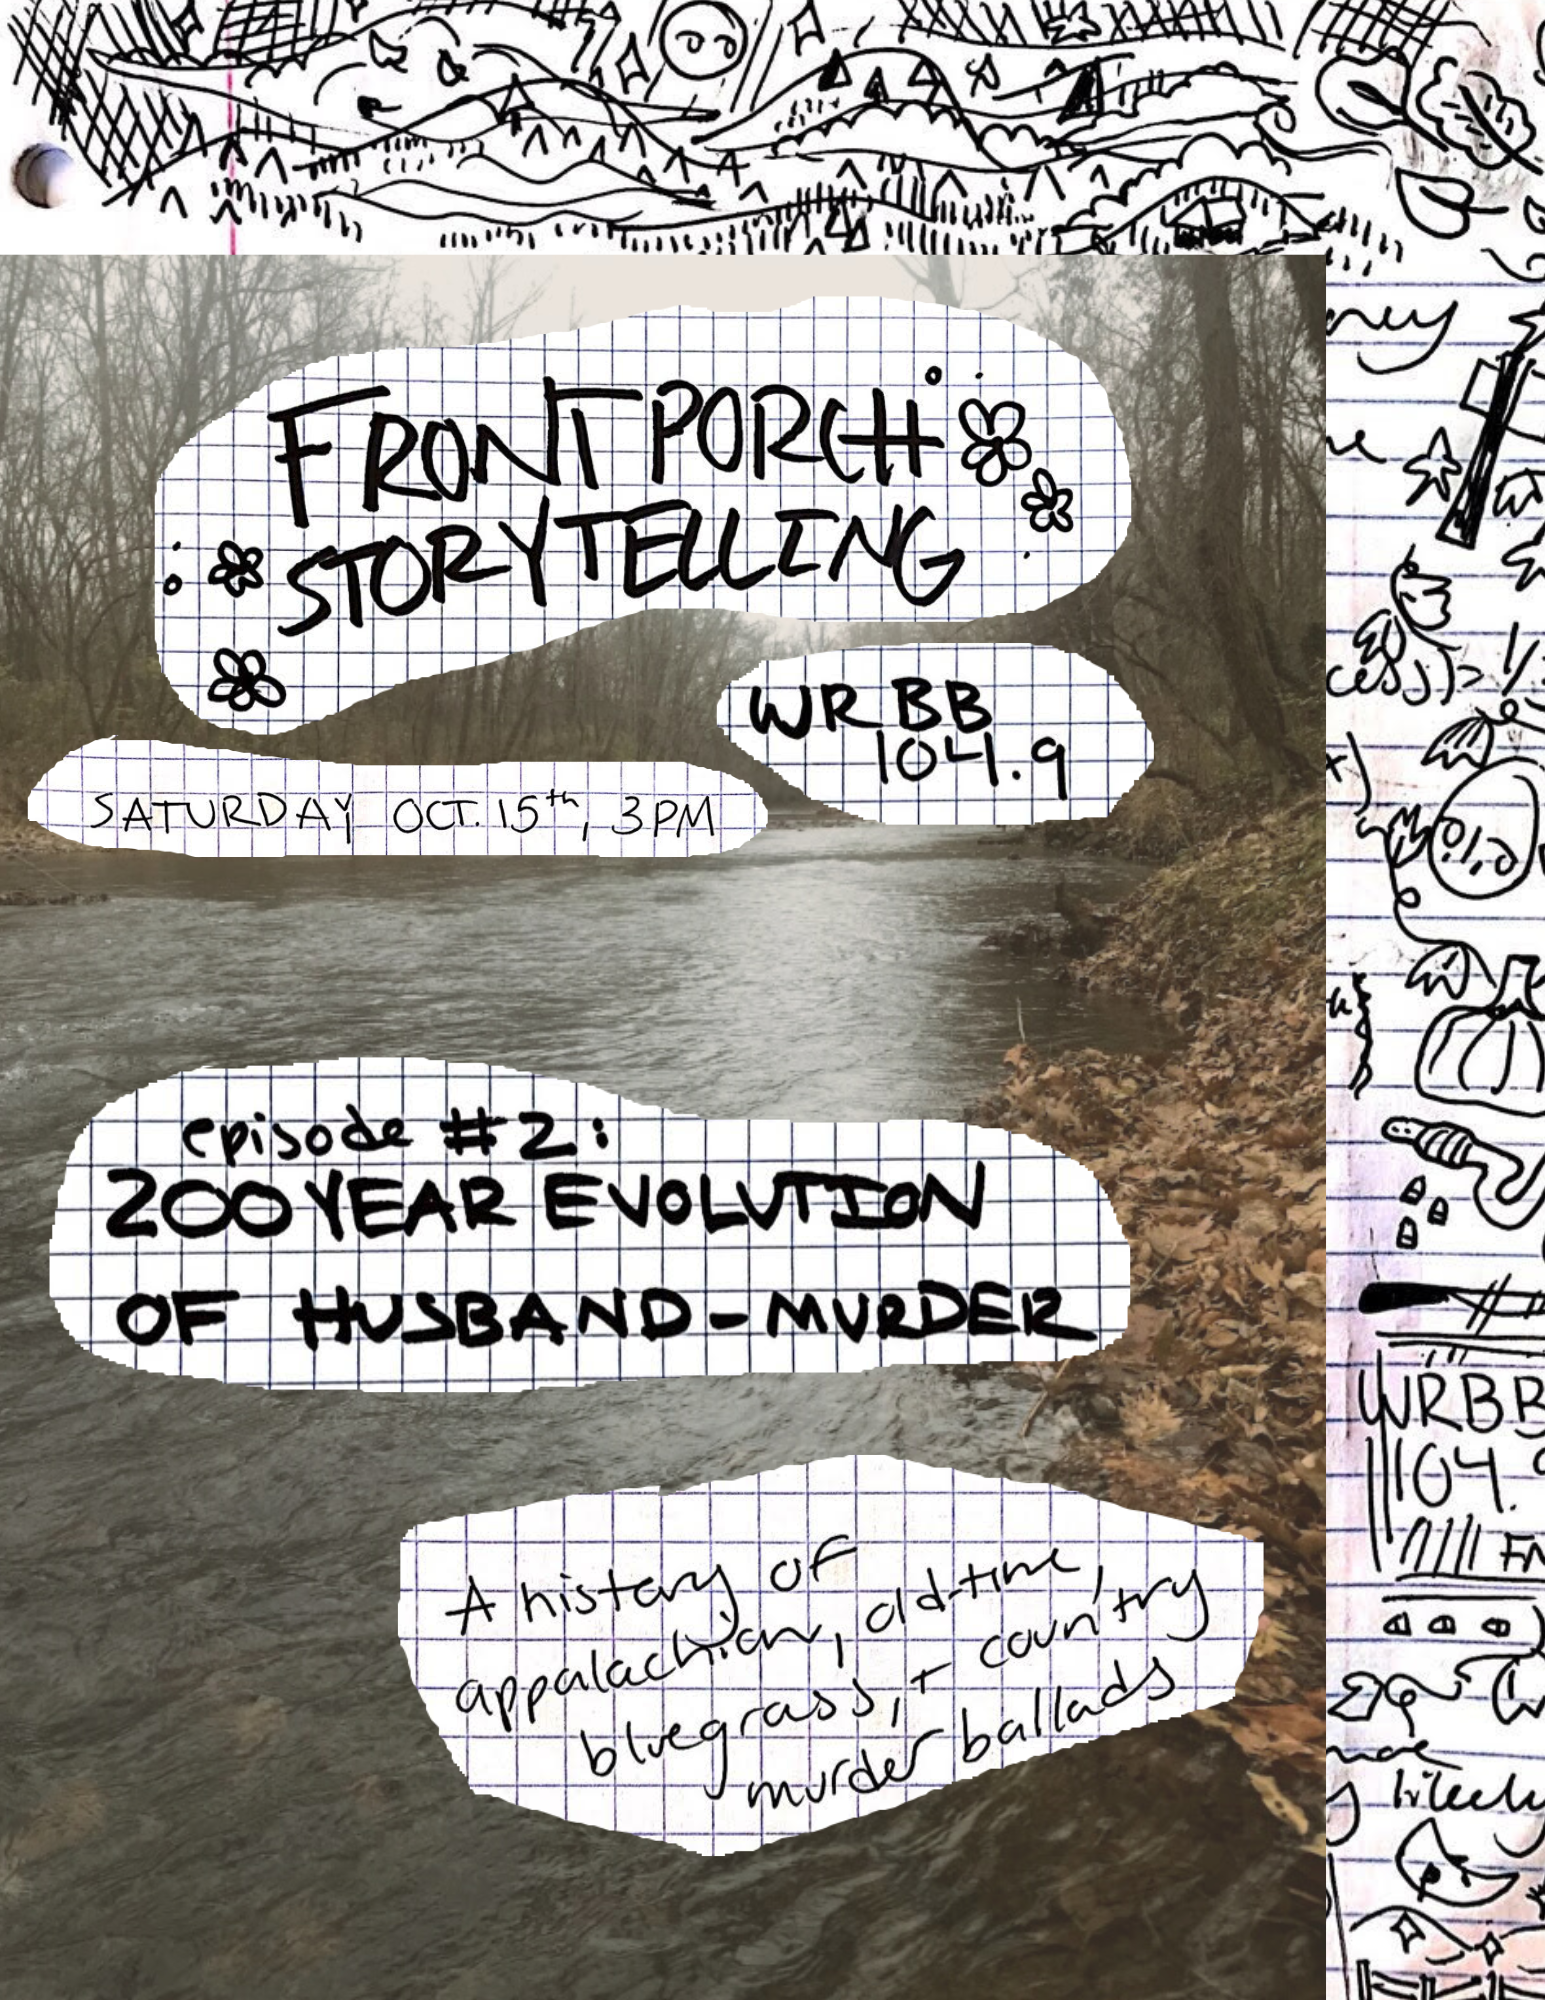 FRONT PORCH
STORYTELLING
WRBB
104.9
SATURDAY OCT. 15th, 3PM
episode #2:
200 YEAR EVOLUTION
OF HUSBAND-MURDER
A history of
appalachian, old-time,
bluegrass, + country
murder ballads
WRBB
104.9